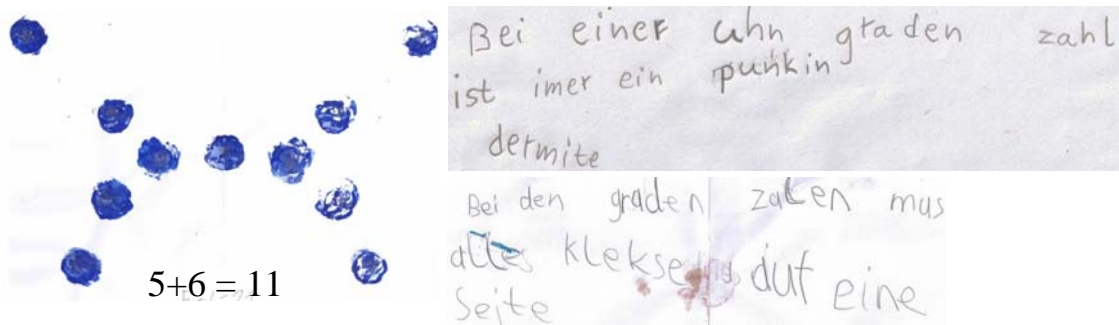 5+6 = 11
Bei einer uhn graden zahl
ist imer ein punkin
dermite
Bei den graden zalen mus
alles Klekse duf eine
Seite